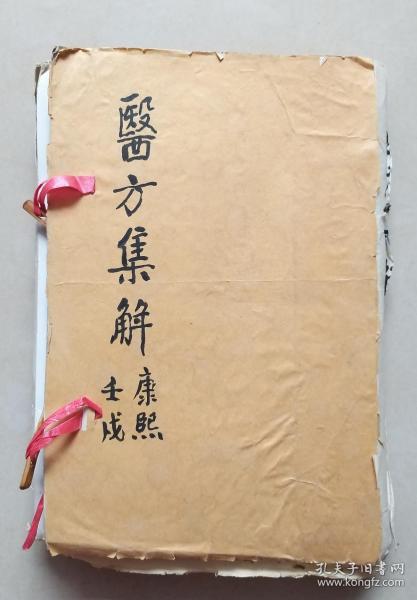 醫方集解
康熙
壬戌
孔夫子旧书网